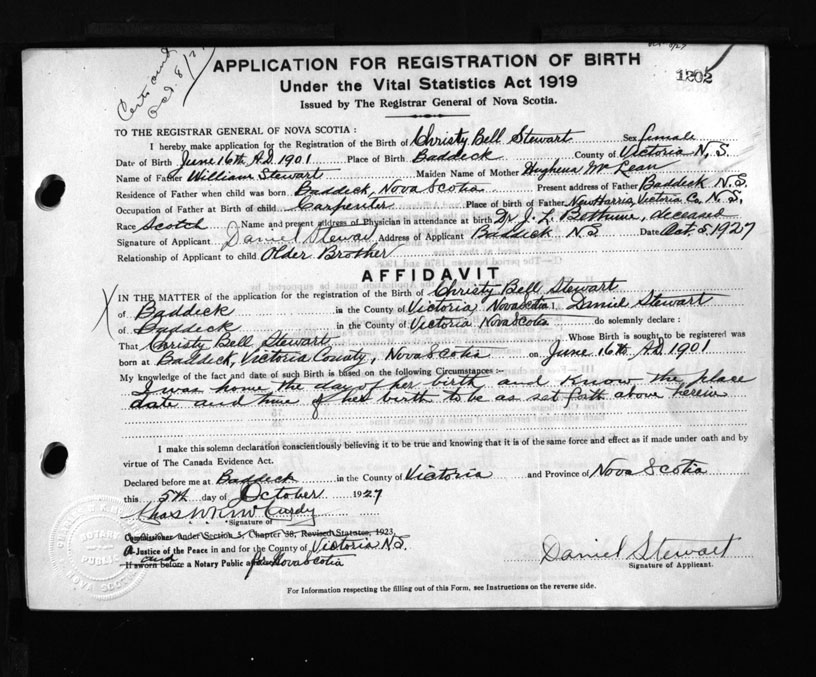 Cert. and
Oct. 8/27
APPLICATION FOR REGISTRATION OF BIRTH
1202
Under the Vital Statistics Act 1919
Issued by The Registrar General of Nova Scotia.
TO THE REGISTRAR GENERAL OF NOVA SCOTIA:
I hereby make application for the Registration of the Birth of Christy Bell Stewart Sex female
Date of Birth June 16th A.D. 1901 Place of Birth Baddeck County of Victoria N.S.
Name of Father William Stewart Maiden Name of Mother Hughena Mc Lean
Residence of Father when child was born Baddeck, Nova Scotia Present address of Father Baddeck N.S.
Occupation of Father at Birth of child Carpenter Place of birth of Father New Harris, Victoria Co. N.S.
Race Scotch Name and present address of Physician in attendance at birth Dr. J. L. Bethune, deceased
Signature of Applicant Daniel Stewart Address of Applicant Baddeck N.S. Date Oct. 5, 1927
Relationship of Applicant to child Older Brother
AFFIDAVIT
IN THE MATTER of the application for the registration of the Birth of Christy Bell Stewart
of Baddeck in the County of Victoria Nova Scotia I, Daniel Stewart
of Baddeck in the County of Victoria Nova Scotia do solemnly declare:
That Christy Bell Stewart Whose Birth is sought to be registered was
born at Baddeck, Victoria County, Nova Scotia on June 16th A.D. 1901
My knowledge of the fact and date of such Birth is based on the following Circumstances :—
I was home the day of her birth and know the place
date and time of her birth to be as set forth above herein
I make this solemn declaration conscientiously believing it to be true and knowing that it is of the same force and effect as if made under oath and by
virtue of The Canada Evidence Act.
Declared before me at Baddeck in the County of Victoria and Province of Nova Scotia
this 5th day of October 1927
Chas W K McCurdy
Signature of
Commissioner under Section 5, Chapter 38, Revised Statutes, 1923,
A Justice of the Peace in and for the County of Victoria N.S.
and
If sworn before a Notary Public Nova Scotia
Daniel Stewart
Signature of Applicant.
For Information respecting the filling out of this Form, see Instructions on the reverse side.